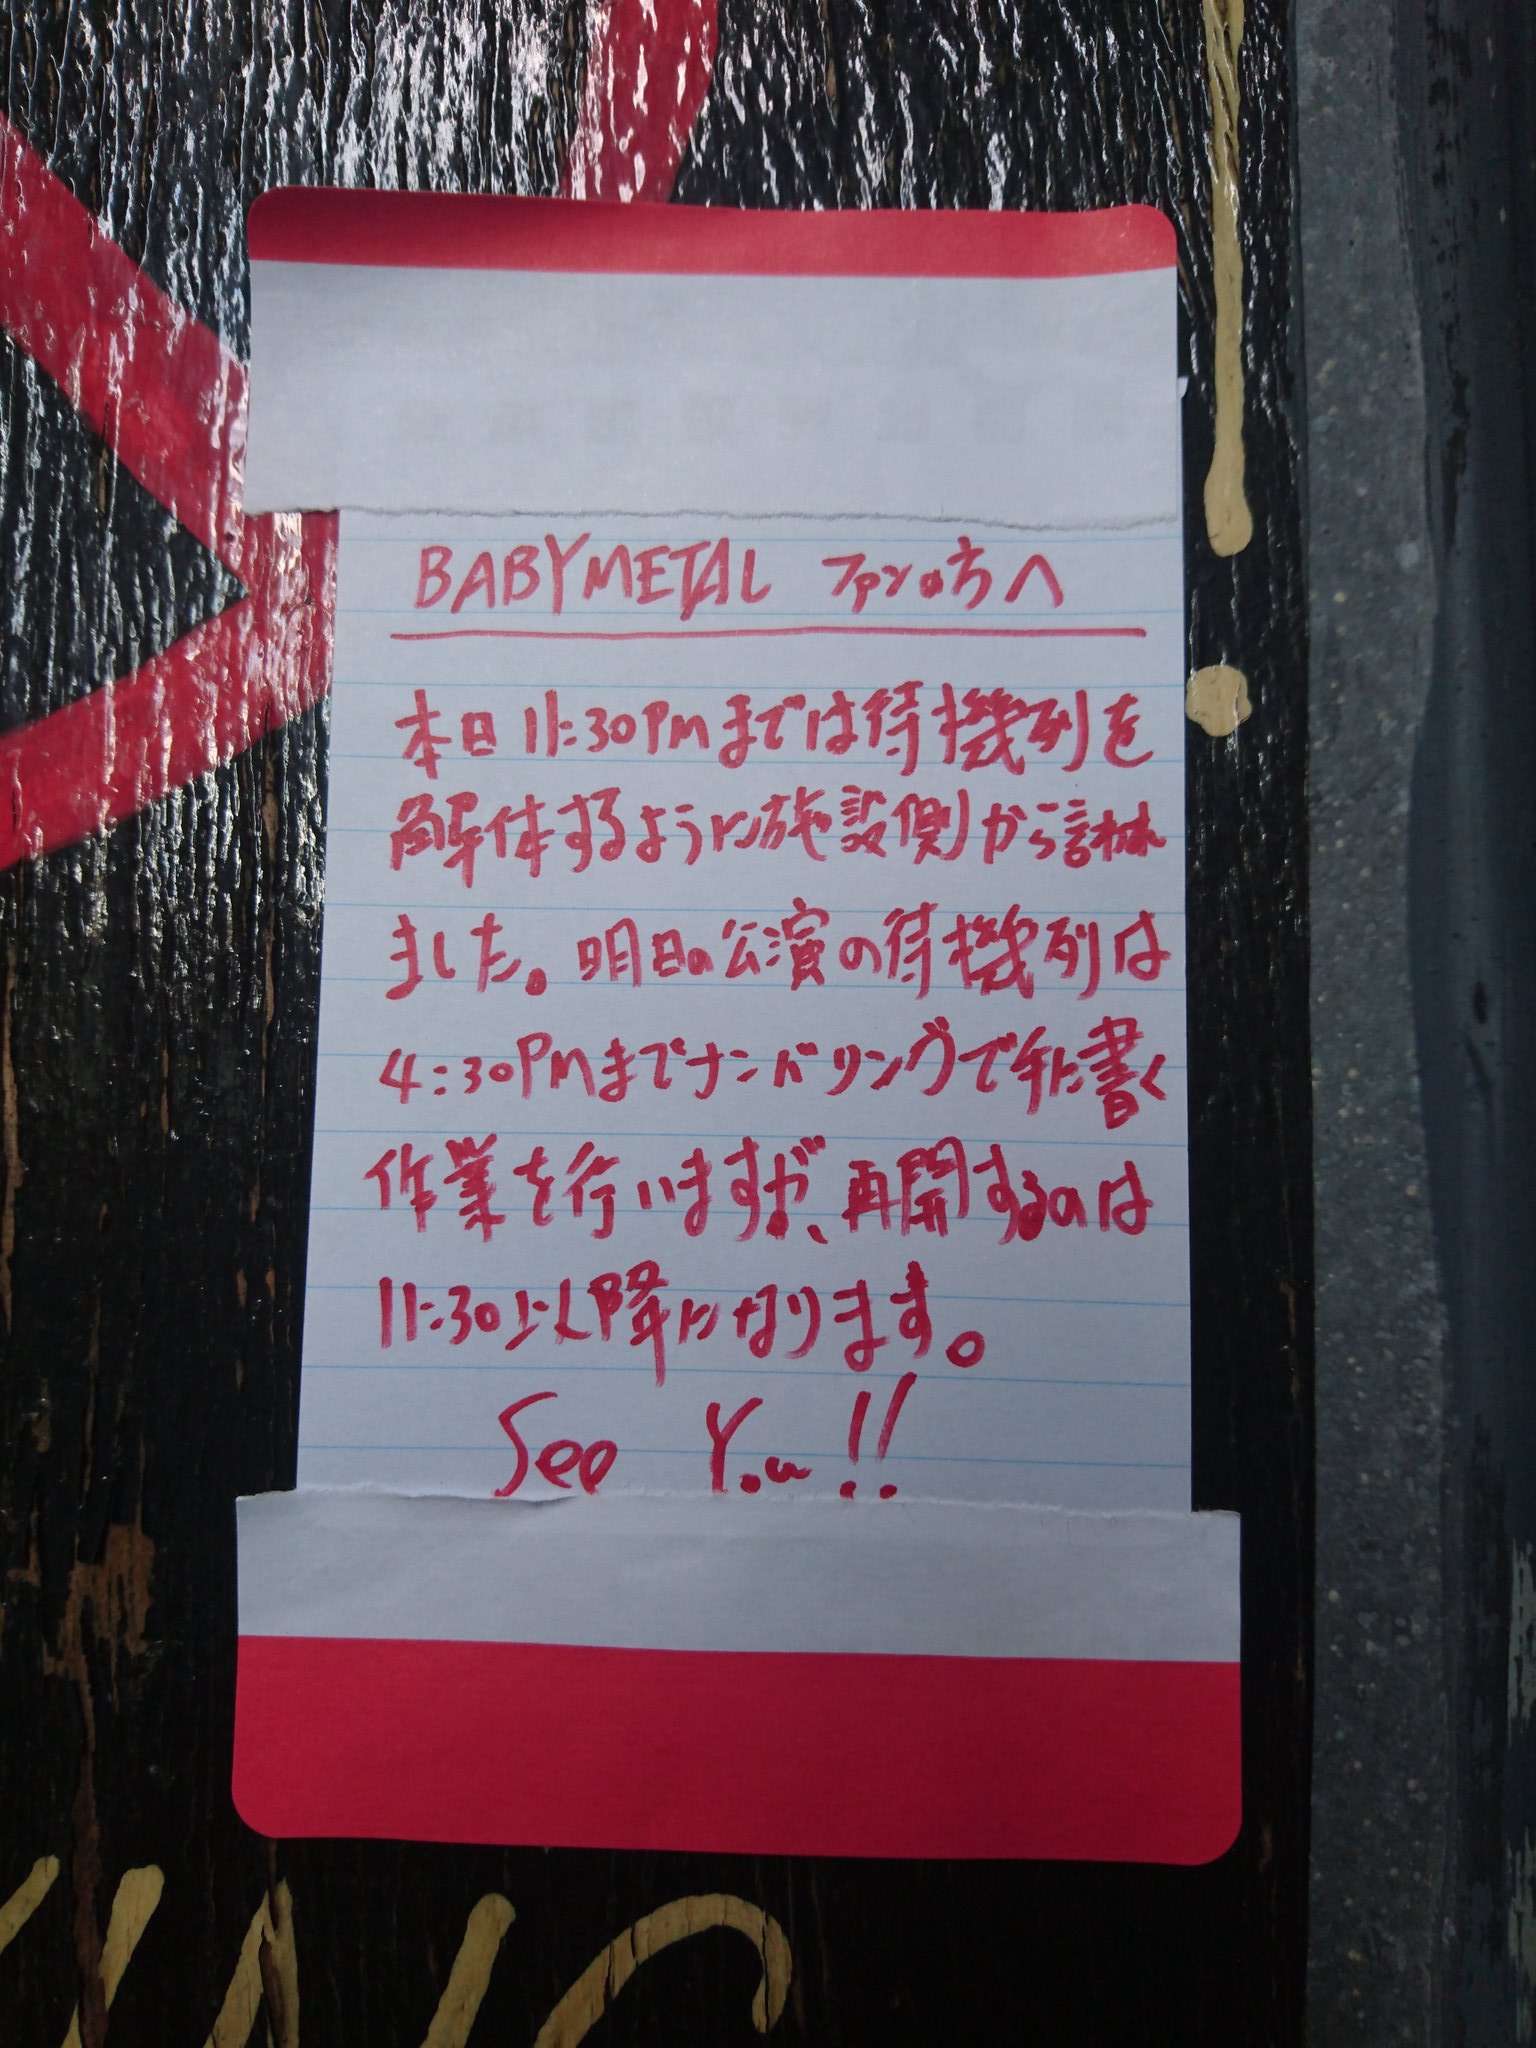 BABYMETAL ファンの方へ
本日11:30PMまでは待機列を
解体するように施設側から言われ
ました。明日の公演の待機列は
4:30PMまでナンバリングで手に書く
作業を行いますが、再開するのは
11:30以降になります。
See You!!